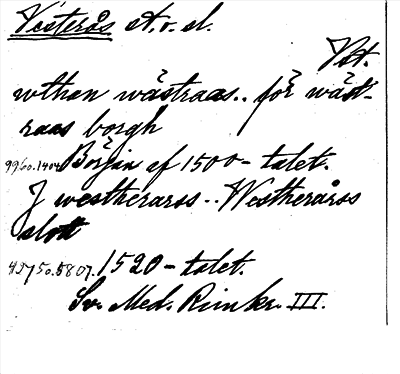 Vesterås A. o. sl.
Vst.
wthan wästraas.. för wäst-
raas borgh
9960.1404 Början af 1500-talet.
J westheraras.. Westheråræs
slott
1520-talet.
Sv. Med. Rimkr. III.